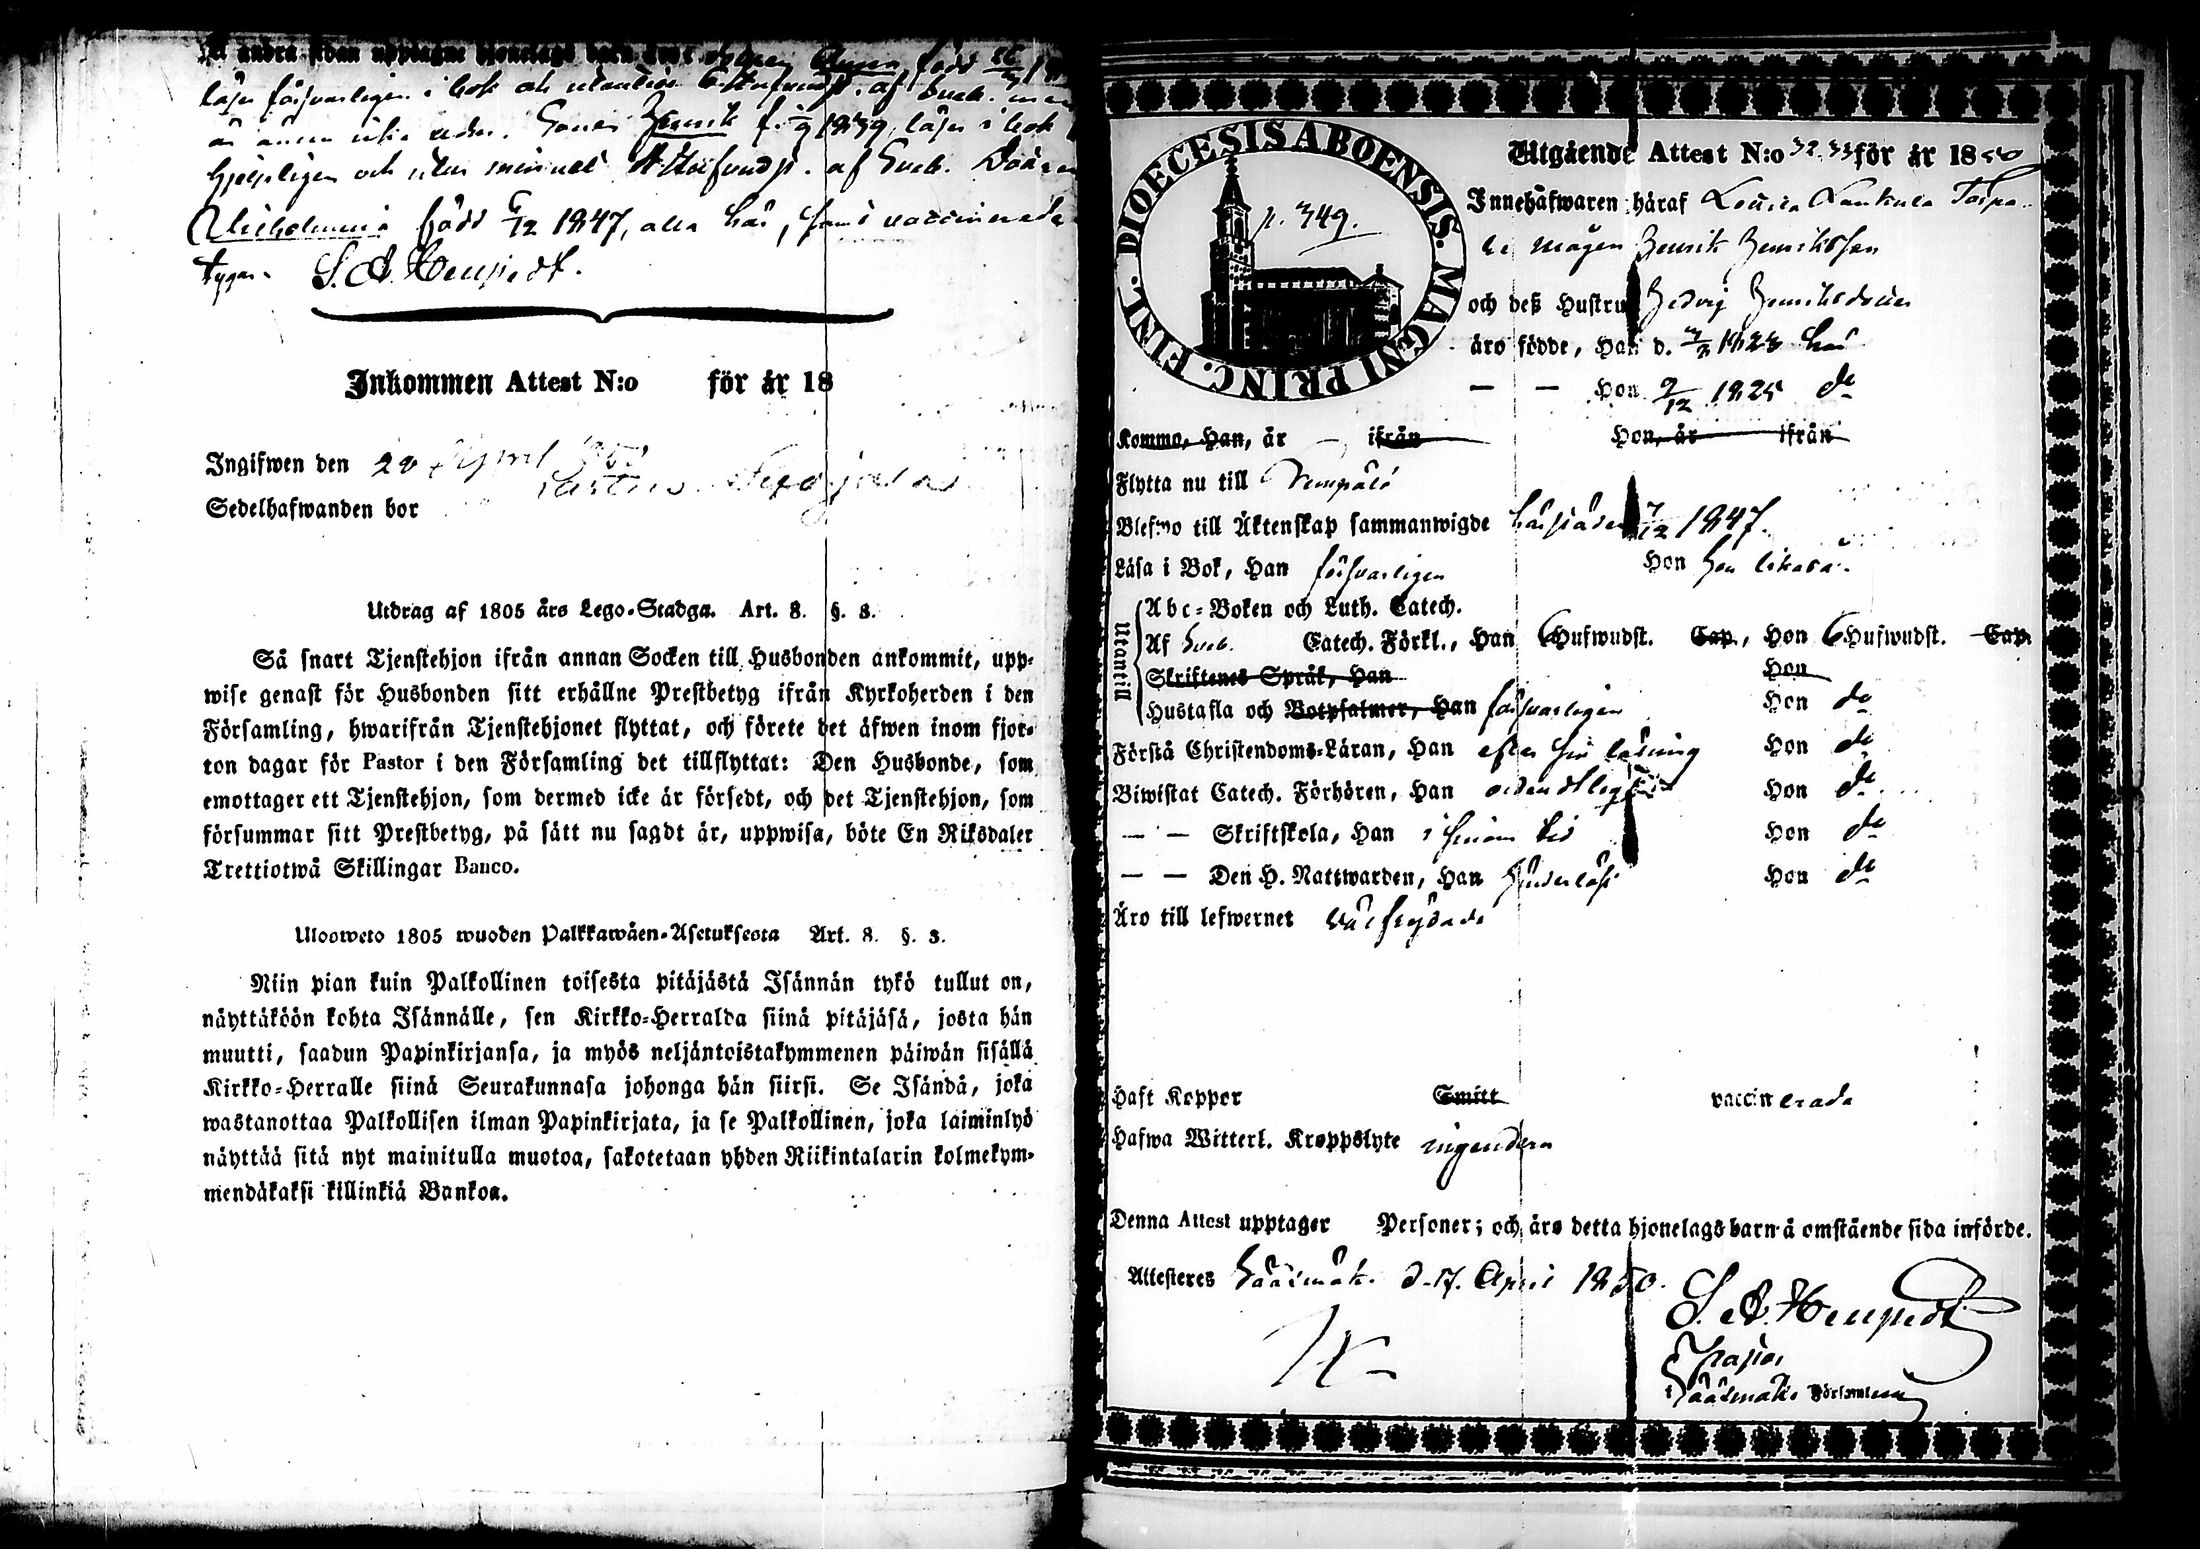 På andra sidan upptagne hjonelags barn äro: Anna född
läser försvarligen i bok och utantill 6 Hufvudst. af Sveb. men
är ännu icke . Sonen Henrik f. 1839, läser i bok
hjelpligen och utur minnet Hufvudst. af Sveb. Dottren
Wilhelmina född 6/12 1847, alla här, samt vaccinerade
tygar. S. A. Heurstedt.
Inkommen Attest N:o för år 18
Ingifwen den 20 April 1850
Sedelhafwanden bor
Utdrag af 1805 års Lego-Stadga. Art. 8. §. 3.
Så snart Tjenstehjon ifrån annan Socken till Husbonden ankommit, upp-
wise genast för Husbonden sitt erhållne Prestbetyg ifrån Kyrkoherden i den
Församling, hwarifrån Tjenstehjonet flyttat, och förete det äfwen inom fjor-
ton dagar för Pastor i den Församling det tillflyttat: Den Husbonde, som
emottager ett Tjenstehjon, som dermed icke är försedt, och det Tjenstehjon, som
försummar sitt Prestbetyg, på sätt nu sagdt är, uppwisa, böte En Riksdaler
Trettiotwå Skillingar Banco.
Ulosweto 1805 wuoden Palkkawäen-Asetuksesta Art. 8. §. 3.
Niin pian kuin Palkollinen toisesta pitäjästä Isännän tykö tullut on,
näyttäköön kohta Isännälle, sen Kirkko-Herralda siinä pitäjäsä, josta hän
muutti, saadun Papinkirjansa, ja myös neljäntoistakymmenen päiwän sisällä
Kirkko-Herralle siinä Seurakunnasa johonga hän siirsi. Se Isändä, joka
wastanottaa Palkollisen ilman Papinkirjata, ja se Palkollinen, joka laiminlyö
näyttää sitä nyt mainitulla muotoa, sakotetaan yhden Riikintalarin kolmekym-
mendäkaksi killinkiä Bankoa.
DIOECESIS ABOENSIS. MAGNI PRINC. FINL.
p. 349.
Utgående Attest N:o 32.33 för år 1850
Innehafwaren häraf Torpa-
re mågen Henrik Henriksson
och deß Hustru Hedvig Henriksdotter
äro födde, Han d. 1823 här
— — Hon 9/12 1825 do
Komma, Han, år — ifrån Hon, år ifrån
Flytta nu till Vempälä
Blefwo till Äktenskap sammanwigde härstädes 1847.
Läsa i Bok, Han försvarligen Hon Hon likaså.
Utantill
Abc-Boken och Luth. Catech.
Af Sveb. Catech. Förkl., Han 6 Hufwudst. Cap., Hon 6 Hufwudst. Cap.
Skriftenes Språk, Han Hon
Hustafla och Botpsalmer, Han försvarligen Hon do
Förstå Christendoms-Läran, Han efter sin läsning Hon do
Biwistat Catech. Förhören, Han ordentligen Hon do
— — Skriftskola, Han i sinom tid Hon do
— — Den H. Nattwarden, Han hinderlöst Hon do
Äro till lefwernet välfrejdade
Haft Koppor Smitt vaccinerade
Hafwa Witterl. Kroppslyte ingendera
Denna Attest upptager Personer; och äro detta hjonelags barn å omstående sida införde.
Attesteras Sääxmäki d. 17. April 1850.
S. A. Heurstedt
Pastor
i Sääxmäki Församling